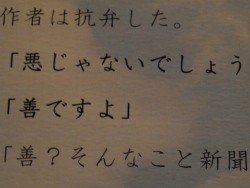 作者は抗弁した。
「悪じゃないでしょう
「善ですよ」
「善?そんなこと新聞